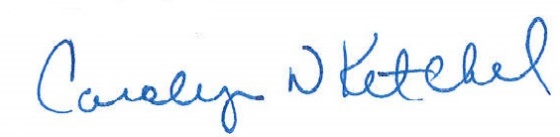 Carolyn N Ketchel